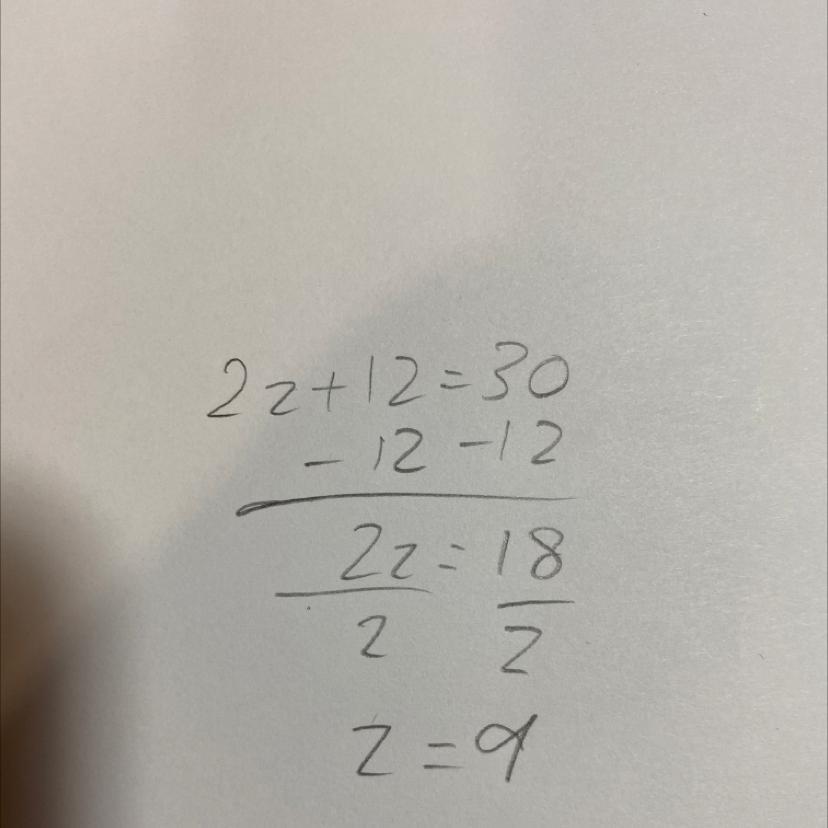 2z+12=30
-12 -12
2z = 18
2 2
z = 9